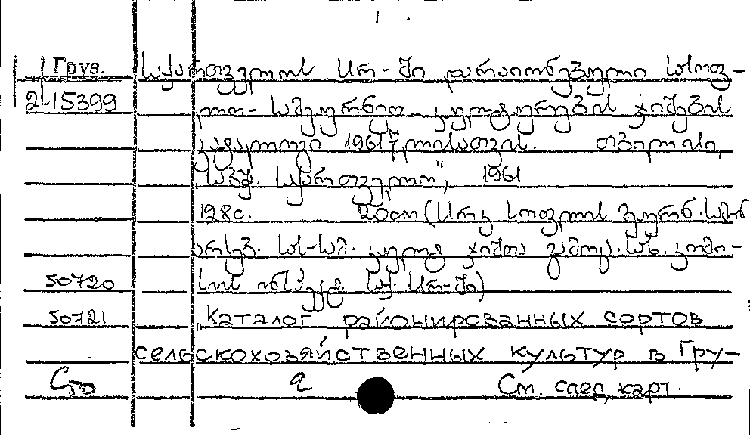 Груз. საქართველოს სსრ-ში დარაიონებული სასოფ-
2-15399 ლო-სამეურნეო კულტურების ჯიშების
კატალოგი 1961 წლისათვის. თბილისი,
საბჭ. საქართველო", 1961
128с. 20 см (სსრკ სოფლის მეურნ. სამ-
სას-სამ. კულტ ჯიშთა გამოცდ. სახ. კომი-
50720 სსრ-ში)
50721 Каталог районированных сортов
сельскохозяйственных культур в Гру-
Сто 2 См. след. карт.